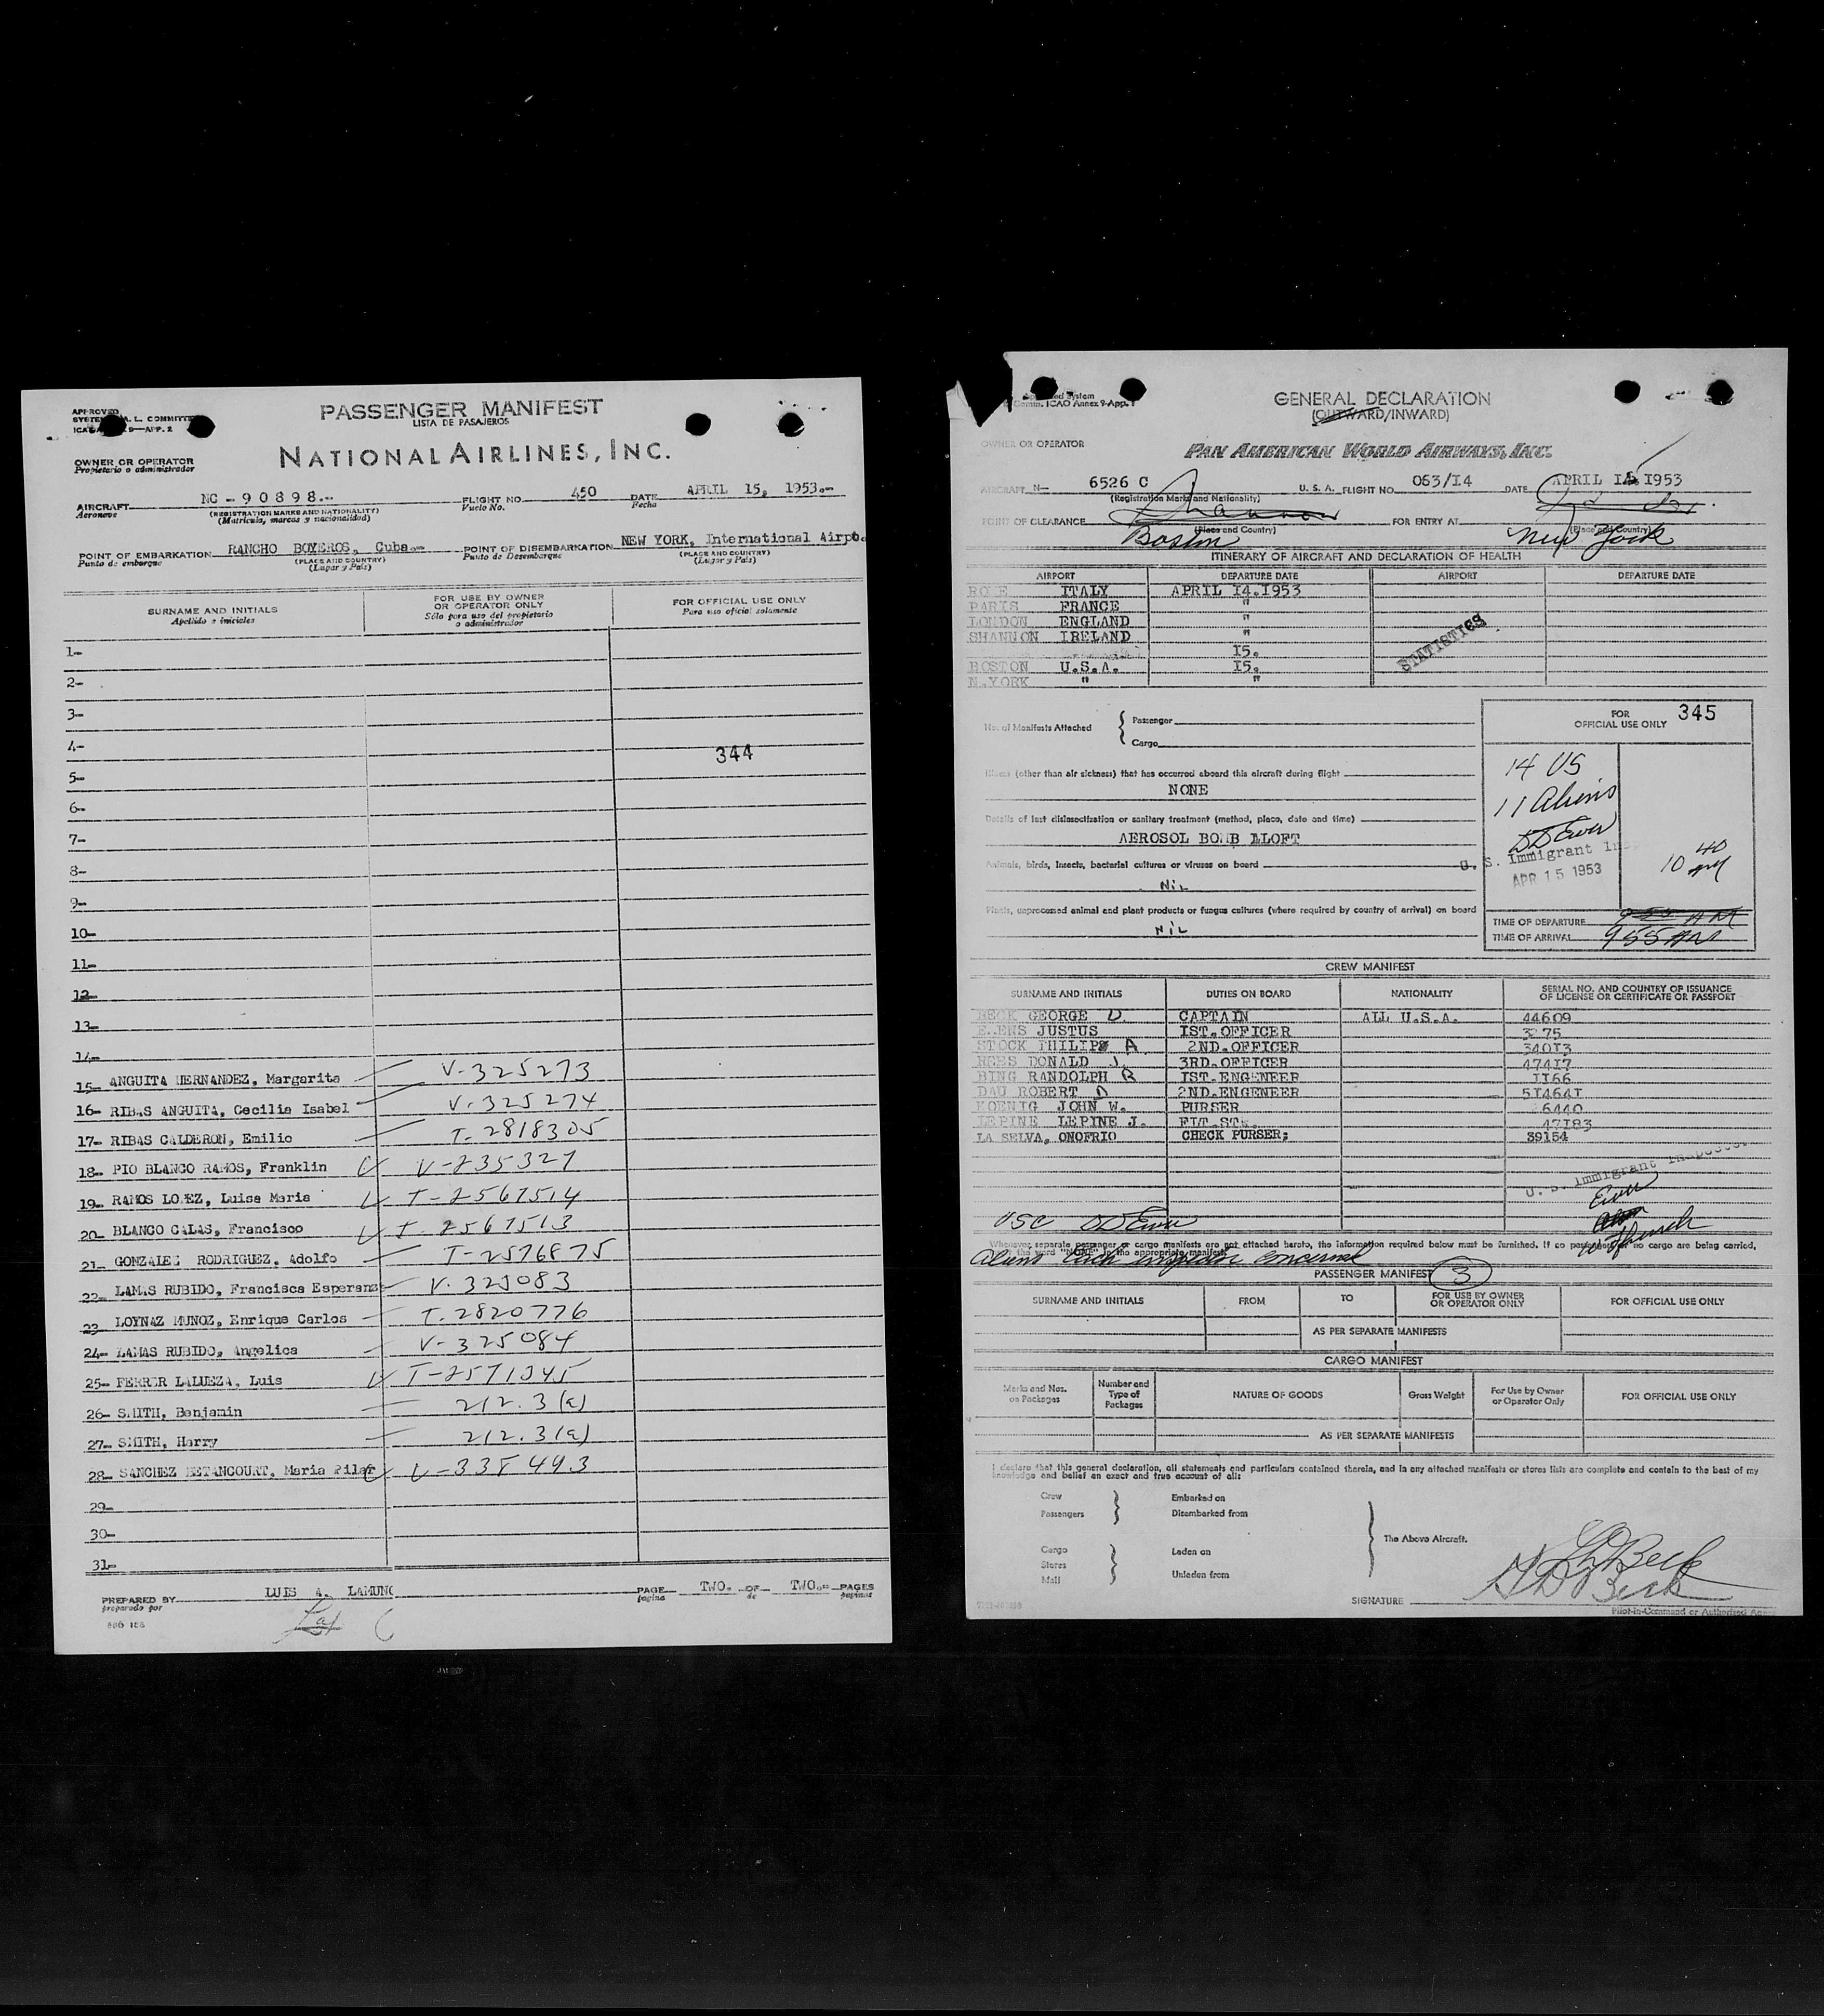 PASSENGER MANIFEST
LISTA DE PASAJEROS
NATIONAL AIRLINES, INC.
OWNER OR OPERATOR
Propietario o administrador
AIRCRAFT NC - 90898.- FLIGHT NO. 450 DATE APRIL 15, 1953.-
Aeronave (REGISTRATION MARKS AND NATIONALITY) Vuelo No. Fecha
(Matricula, marcas y nacionalidad)
POINT OF EMBARKATION RANCHO BOYEROS, Cuba.- POINT OF DISEMBARKATION NEW YORK, International Airpt.
Punto de embarque (PLACE AND COUNTRY) Punto de Desembarque (PLACE AND COUNTRY)
(Lugar y Pais) (Lugar y Pais)
SURNAME AND INITIALS FOR USE BY OWNER OR OPERATOR ONLY FOR OFFICIAL USE ONLY
Apellido e iniciales Sólo para uso del propietario o administrador Para uso oficial solamente
1-
2-
3-
4-
344
5-
6-
7-
8-
9-
10-
11-
12-
13-
14-
15- ANGUITA HERNANDEZ, Margarita V-325273
16- RIBAS ANGUITA, Cecilia Isabel V-325274
17- RIBAS CALDERON, Emilio T-2818305
18- PIO BLANCO RAMOS, Franklin V-235327
19- RAMOS LOPEZ, Luisa Maria T-2567514
20- BLANCO CALAS, Francisco T-2567513
21- GONZALEZ RODRIGUEZ, Adolfo T-2576875
22- LAMAS RUBIDO, Francisca Esperanz V-325083
23- LOYNAZ MUNOZ, Enrique Carlos T-2820776
24- LAMAS RUBIDO, Angelica V-325084
25- FERRER LALUEZA, Luis T-2571345
26- SMITH, Benjamin 212.3(a)
27- SMITH, Harry 212.3(a)
28- SANCHEZ BETANCOURT, Maria Pilar V-335493
29-
30-
31-
PREPARED BY LUIS A. LAMUNO PAGE TWO. OF TWO.- PAGES
preparado por pagina de paginas
GENERAL DECLARATION
(OUTWARD/INWARD)
OWNER OR OPERATOR
PAN AMERICAN WORLD AIRWAYS, INC.
AIRCRAFT N— 6526 C U. S. A. FLIGHT NO. 063/14 DATE APRIL 15 1953
(Registration Marks and Nationality)
POINT OF CLEARANCE Shannon FOR ENTRY AT
(Place and Country) (Place and Country)
Boston New York
ITINERARY OF AIRCRAFT AND DECLARATION OF HEALTH
AIRPORT DEPARTURE DATE AIRPORT DEPARTURE DATE
ROME ITALY APRIL 14.1953
PARIS FRANCE "
LONDON ENGLAND "
SHANNON IRELAND "
15.
BOSTON U.S.A. 15.
N.YORK " "
STATISTICS
No. of Manifests Attached { Passenger
Cargo
FOR OFFICIAL USE ONLY 345
14 US
11 Aliens
DD Ewer
U. S. Immigrant Ins
APR 15 1953
10 40 AM
Illness (other than air sickness) that has occurred aboard this aircraft during flight
NONE
Details of last disinsectization or sanitary treatment (method, place, date and time)
AEROSOL BOMB ALOFT
Animals, birds, insects, bacterial cultures or viruses on board
NiL
Plants, unprocessed animal and plant products or fungus cultures (where required by country of arrival) on board
NiL
TIME OF DEPARTURE
TIME OF ARRIVAL 955 AM
CREW MANIFEST
SURNAME AND INITIALS DUTIES ON BOARD NATIONALITY SERIAL NO. AND COUNTRY OF ISSUANCE OF LICENSE OR CERTIFICATE OR PASSPORT
BECK GEORGE D. CAPTAIN ALL U.S.A. 44609
JUSTUS IST.OFFICER
STOCK PHILIP A 2ND.OFFICER 34013
REES DONALD J. 3RD.OFFICER 47417
BING RANDOLPH R IST.ENGENEER 1166
DAU ROBERT A 2ND.ENGENEER 514641
KOENIG JOHN W. PURSER 6440
LEPINE LEPINE J. FLT.STD. 47183
LA SELVA, ONOFRIO CHECK PURSER; 39154
U. S. Immigrant Inspector
Ewer
USC DD Ewer
Whenever separate passenger or cargo manifests are not attached hereto, the information required below must be furnished. If no passengers or no cargo are being carried, the word "NONE" in the appropriate manifest
Aliens Each inspector concerned
PASSENGER MANIFEST 3
SURNAME AND INITIALS FROM TO FOR USE BY OWNER OR OPERATOR ONLY FOR OFFICIAL USE ONLY
AS PER SEPARATE MANIFESTS
CARGO MANIFEST
Marks and Nos. on Packages Number and Type of Packages NATURE OF GOODS Gross Weight For Use by Owner or Operator Only FOR OFFICIAL USE ONLY
AS PER SEPARATE MANIFESTS
I declare that this general declaration, all statements and particulars contained therein, and in any attached manifests or stores lists are complete and contain to the best of my knowledge and belief an exact and true account of all:
Crew Embarked on
Passengers Disembarked from
The Above Aircraft.
Cargo Laden on
Stores
Mail Unladen from
GD Beck
GD Beck
SIGNATURE
Pilot-in-Command or Authorized Agent